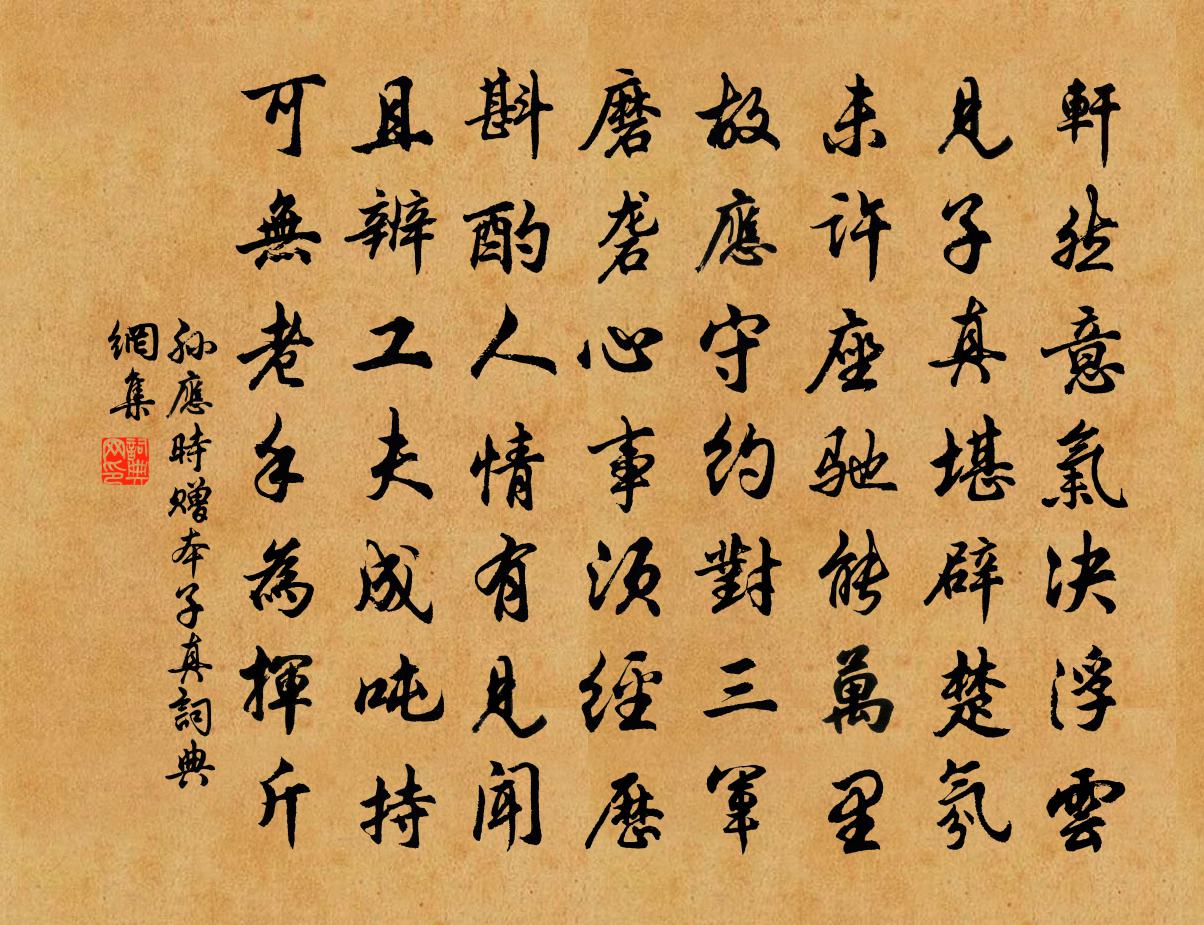 軒然意氣決浮雲
見子真堪辟楚氛
未許座馳能萬里
故應守約對三軍
磨礱心事須經歷
斟酌人情有見聞
且辦工夫成吨持
可無老手為揮斤
孫應時赠本子真詞典
網集
詞典网印